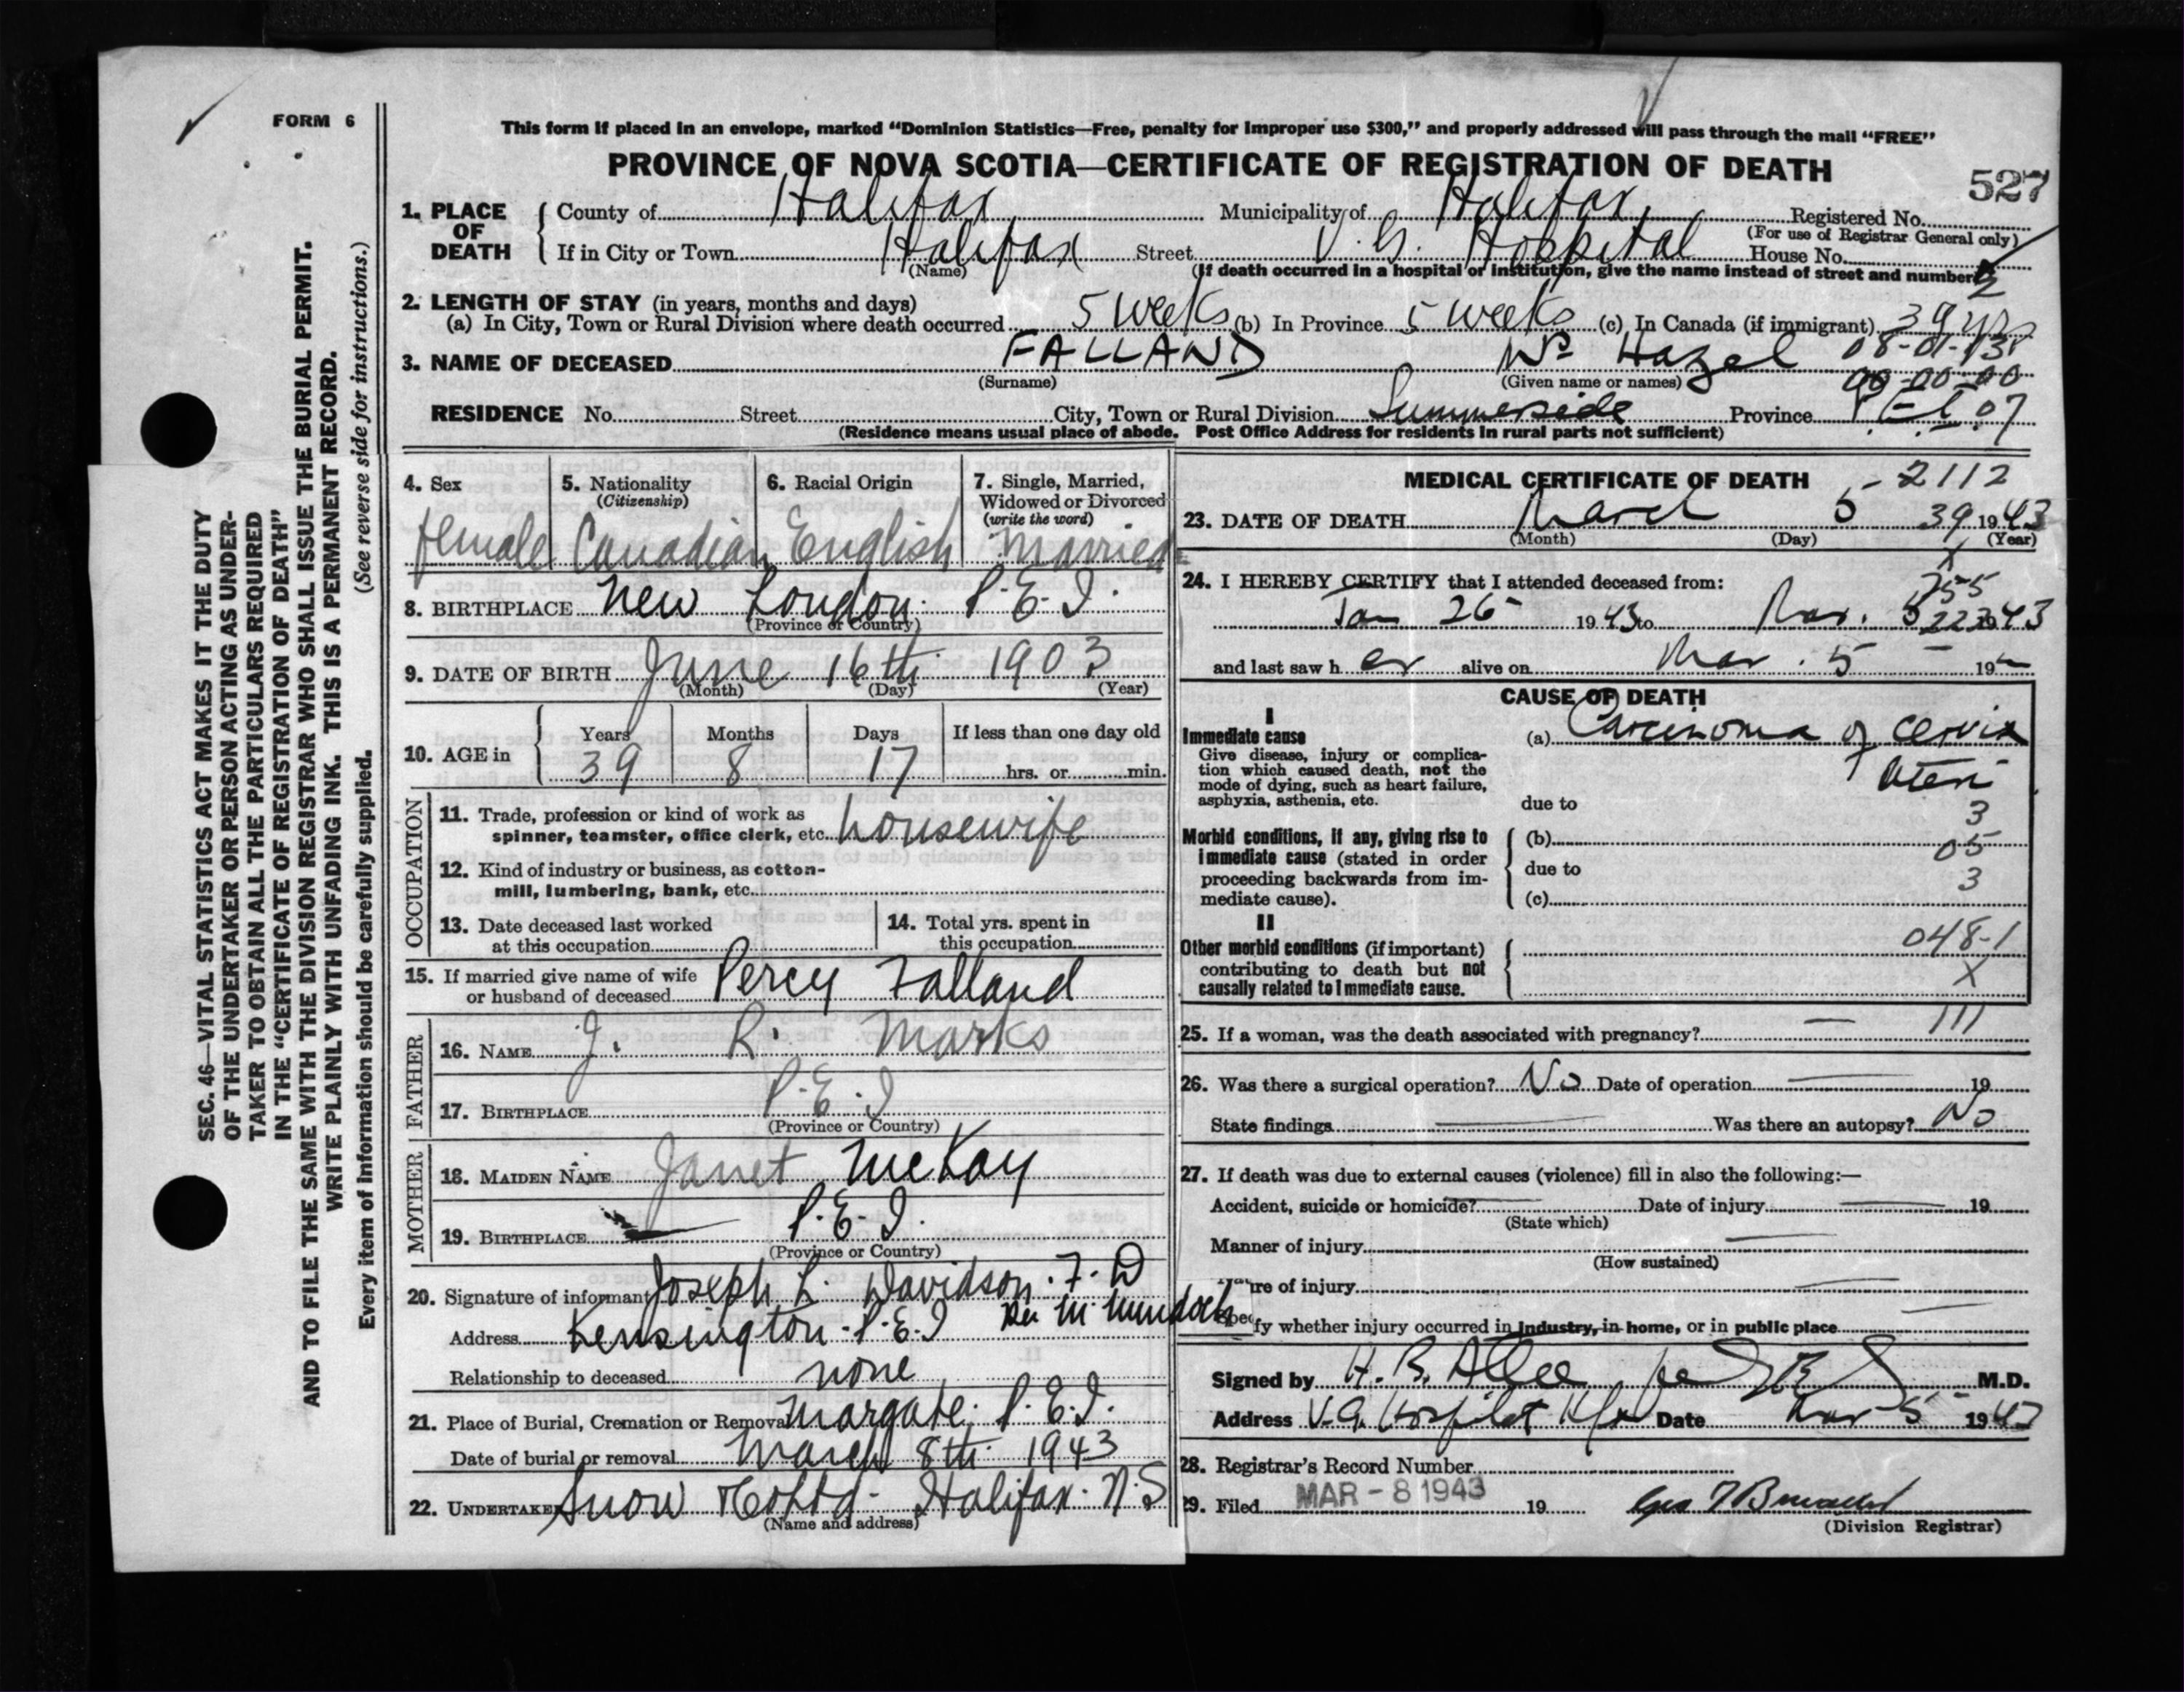 FORM 6
This form if placed in an envelope, marked “Dominion Statistics—Free, penalty for improper use $300,” and properly addressed will pass through the mail “FREE”
PROVINCE OF NOVA SCOTIA—CERTIFICATE OF REGISTRATION OF DEATH
527
1. PLACE OF DEATH { County of Halifax Municipality of Halifax Registered No.
(For use of Registrar General only)
If in City or Town Halifax Street V. G. Hospital House No.
(Name) (If death occurred in a hospital or institution, give the name instead of street and number)
2
2. LENGTH OF STAY (in years, months and days)
(a) In City, Town or Rural Division where death occurred 5 weeks (b) In Province 5 weeks (c) In Canada (if immigrant) 39 yrs
3. NAME OF DECEASED FALLAND Mrs Hazel
(Surname) (Given name or names)
00-00-00
RESIDENCE No. Street City, Town or Rural Division Summerside Province P.E.I. 07
(Residence means usual place of abode. Post Office Address for residents in rural parts not sufficient)
4. Sex 5. Nationality (Citizenship) 6. Racial Origin 7. Single, Married, Widowed or Divorced (write the word)
female Canadian English Married
8. BIRTHPLACE New London P.E.I.
(Province or Country)
9. DATE OF BIRTH June 16th 1903
(Month) (Day) (Year)
10. AGE in { Years Months Days If less than one day old
39 8 17 hrs. or min.
OCCUPATION
11. Trade, profession or kind of work as
spinner, teamster, office clerk, etc. housewife
12. Kind of industry or business, as cotton-
mill, lumbering, bank, etc.
13. Date deceased last worked
at this occupation
14. Total yrs. spent in
this occupation
15. If married give name of wife
or husband of deceased Percy Falland
FATHER
16. NAME J. R. Marks
17. BIRTHPLACE P.E.I
(Province or Country)
MOTHER
18. MAIDEN NAME Janet McKay
19. BIRTHPLACE P.E.I.
(Province or Country)
20. Signature of informant Joseph L. Davidson. F. D
Address Kensington. P.E.I
Relationship to deceased none
21. Place of Burial, Cremation or Removal Margate. P.E.I.
Date of burial or removal March 8th 1943
22. UNDERTAKER Snow & Co Ltd - Halifax. N.S
(Name and address)
MEDICAL CERTIFICATE OF DEATH
2112
23. DATE OF DEATH March 5 39 1943
(Month) (Day) (Year)
X
24. I HEREBY CERTIFY that I attended deceased from:
Jan 26 1943 to Mar. 5 1943
and last saw h er alive on Mar. 5 19
CAUSE OF DEATH
I
Immediate cause
Give disease, injury or complica-
tion which caused death, not the
mode of dying, such as heart failure,
asphyxia, asthenia, etc.
(a) Carcinoma of cervix
uteri
due to
3
Morbid conditions, if any, giving rise to
immediate cause (stated in order
proceeding backwards from im-
mediate cause).
(b)
05
due to
3
(c)
II
Other morbid conditions (if important)
contributing to death but not
causally related to immediate cause.
048-1
X
25. If a woman, was the death associated with pregnancy? — 111
26. Was there a surgical operation? No Date of operation — 19
State findings — Was there an autopsy? No
27. If death was due to external causes (violence) fill in also the following:—
Accident, suicide or homicide? — Date of injury — 19
(State which)
Manner of injury —
(How sustained)
ture of injury —
Specify whether injury occurred in industry, in home, or in public place —
Signed by H. B. Atlee M.D.
Address V.G. Hospital Hfx Date Mar 5 1943
28. Registrar's Record Number
29. Filed MAR - 8 1943 19
(Division Registrar)
SEC. 46—VITAL STATISTICS ACT MAKES IT THE DUTY
OF THE UNDERTAKER OR PERSON ACTING AS UNDER-
TAKER TO OBTAIN ALL THE PARTICULARS REQUIRED
IN THE “CERTIFICATE OF REGISTRATION OF DEATH”
AND TO FILE THE SAME WITH THE DIVISION REGISTRAR WHO SHALL ISSUE THE BURIAL PERMIT.
WRITE PLAINLY WITH UNFADING INK. THIS IS A PERMANENT RECORD.
Every item of information should be carefully supplied. (See reverse side for instructions.)